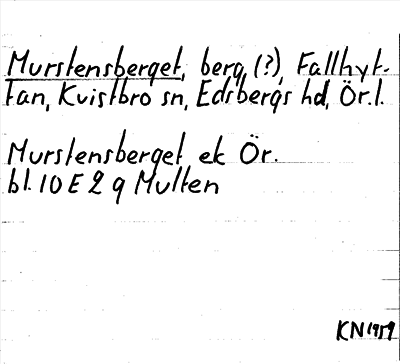 Murstensberget, berg, (?), Fallhyt-
tan, Kvistbro sn, Edsbergs hd, Ör.l.
Murstensberget ek Ör.
bl. 10 E 2 g Multen
KN 1959